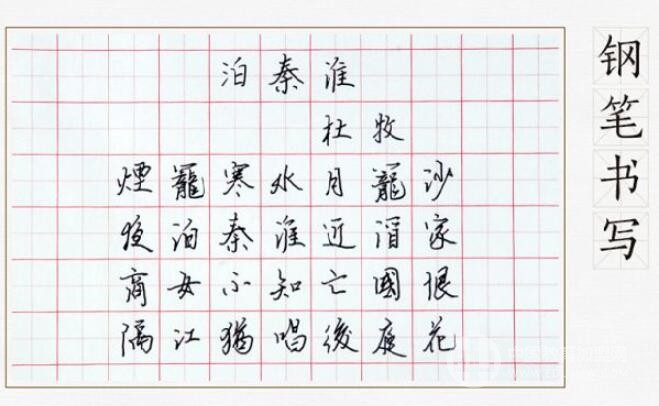 泊秦淮
杜牧
煙籠寒水月籠沙
夜泊秦淮近酒家
商女不知亡國恨
隔江猶唱後庭花
钢笔书写